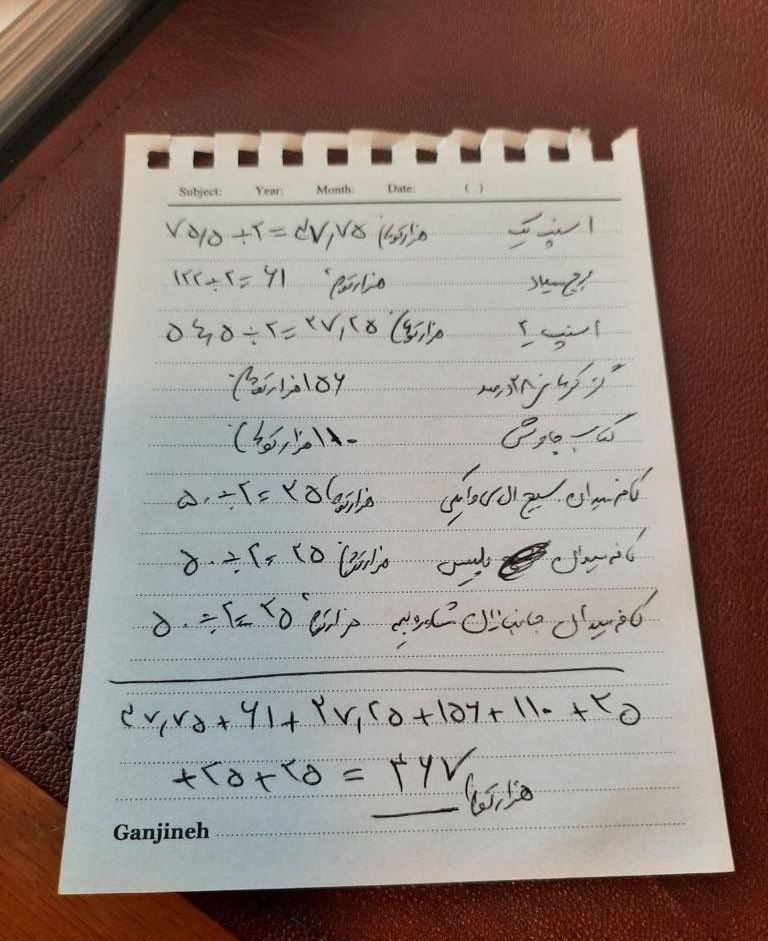 Subject: Year: Month: Date: ( )
اسنپ یک هزارتومان ۷۵٫۵ ÷ ۲ = ۳۷٫۷۵
برج میلاد هزارتومان ۱۲۲ ÷ ۲ = ۶۱
اسنپ ۲ هزارتومان ۵۴٫۵ ÷ ۲ = ۲۷٫۲۵
گز کرمانی ۲۸درصد ۱۵۶هزارتومان
کتاب چاوشی ۱۱۰هزارتومان
کافه میدان بسیج ال سی وایکیکی هزارتومان ۵۰ ÷ ۲ = ۲۵
کافه میدان پلیس هزارتومان ۵۰ ÷ ۲ = ۲۵
کافه میدان جانبازان هزارتومان ۵۰ ÷ ۲ = ۲۵
۳۷٫۷۵ + ۶۱ + ۲۷٫۲۵ + ۱۵۶ + ۱۱۰ + ۲۵
+ ۲۵ + ۲۵ = ۴۶۷ هزارتومان
Ganjineh